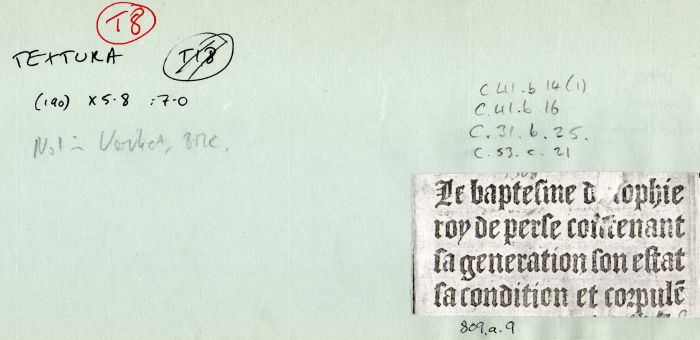 T8
TEXTURA T18
(190) x 5·8 :7·0
C.41.b.14(1)
C.41.b.16
C.31.b.25.
C.53.c.21
Not in Vervliet, BMC.
Le baptesme d sophie
roy de perse contenant
sa generation son estat
sa condition et corpulẽ
809.a.9